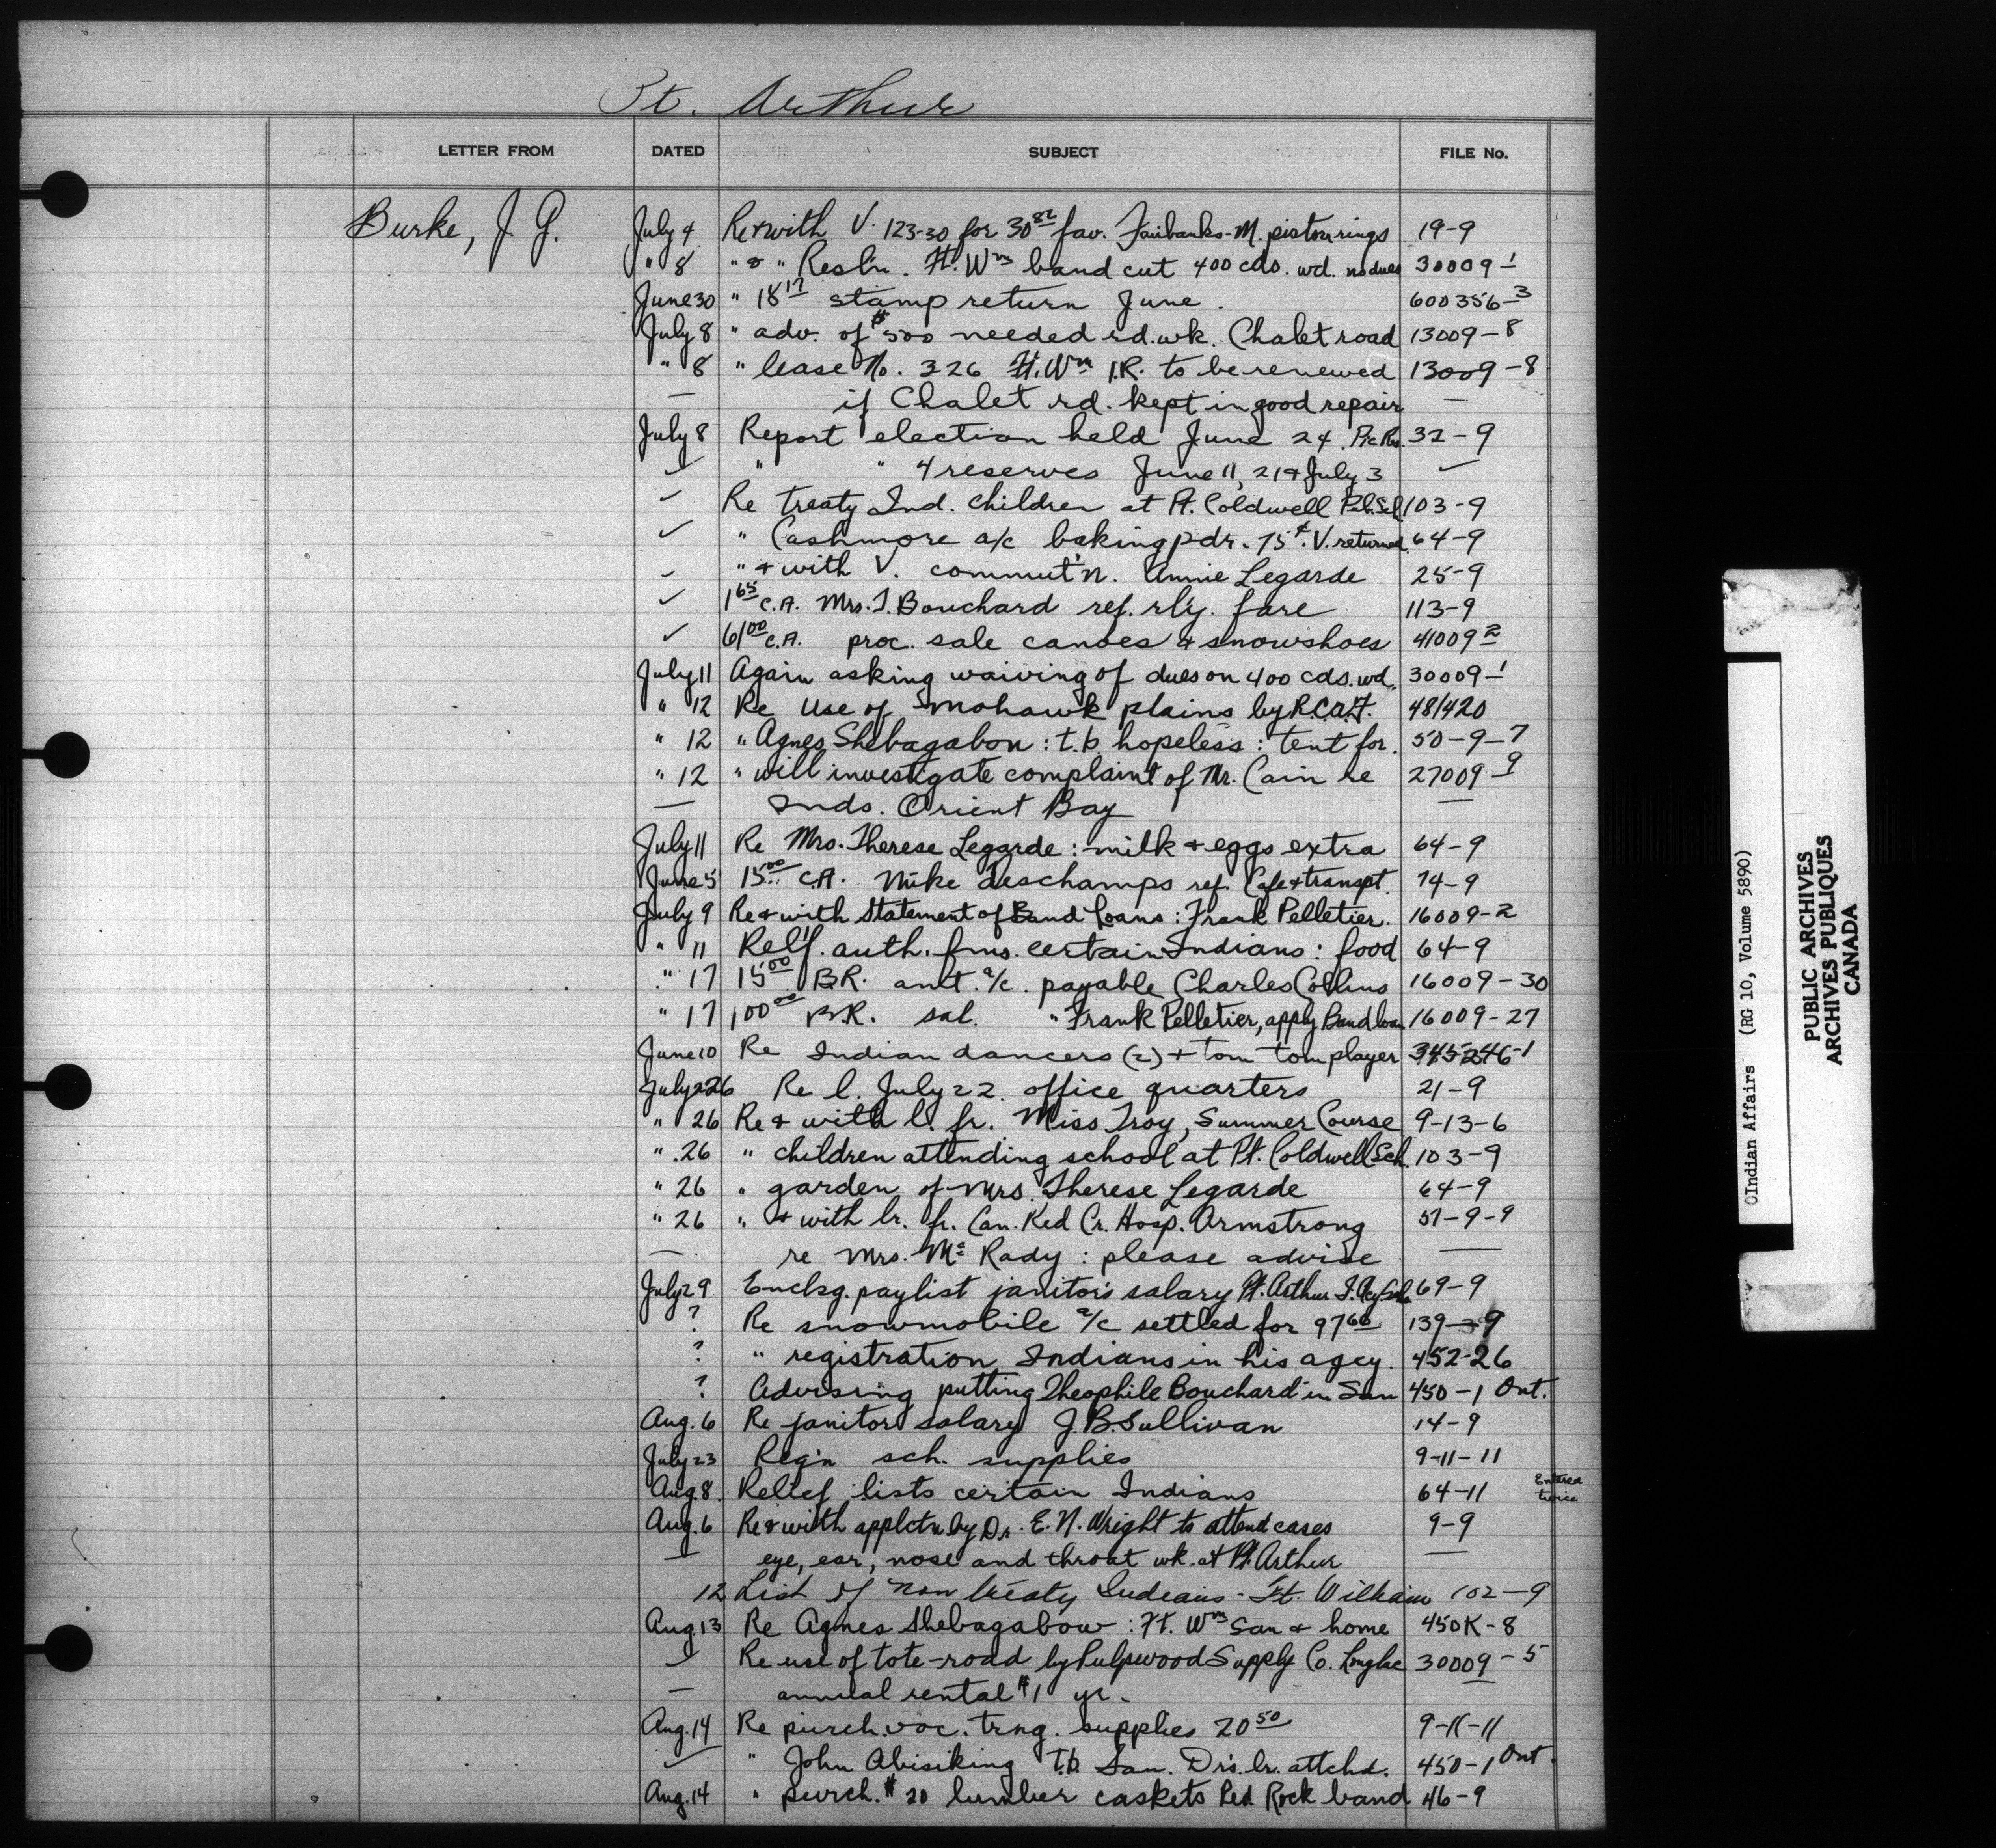 Pt. Arthur
LETTER FROM DATED SUBJECT FILE No.
Burke, J. G. July 4 Re & with V. 123-30 for 30 82 fav. Fairbanks-M. piston rings 19-9
" 8 " & " Resl'n. Ft. Wm band cut 400 cds. wd. no dues 30009-1
June 30 " 18 17 stamp return June. 600356-3
July 8 " adv. of $500 needed rd. wk. Chalet road 13009-8
" 8 " lease No. 326 Ft. Wm I.R. to be renewed 13009-8
— if Chalet rd. kept in good repair —
July 8 Report election held June 24. Pic Res. 32-9
✓ " " 4 reserves June 11, 21 & July 3 ✓
✓ Re treaty Ind. children at Pt. Coldwell Pub. Sch 103-9
✓ " Cashmore a/c baking pdr. 75¢. V. returned 64-9
✓ " & with V. commut'n. Annie Legarde 25-9
✓ 1 65 C.A. Mrs. T. Bouchard ref. rly. fare 113-9
✓ 61 00 C.A. proc. sale canoes & snowshoes 41009-2
July 11 Again asking waiving of dues on 400 cds. wd. 30009-1
" 12 Re Use of Mohawk plains by R.C.A.F. 481420
" 12 " Agnes Shebagabow: t.b. hopeless: tent for. 50-9-7
" 12 " will investigate complaint of Mr. Cain re 27009-9
— Inds. Orient Bay —
July 11 Re Mrs. Therese Legarde: milk & eggs extra 64-9
June 5 15 00 C.A. Mike deschamps ref. Cafe & transpt. 74-9
July 9 Re & with Statement of Band Loans: Frank Pelletier. 16009-2
" 11 Relf. auth. fms. certain Indians: food 64-9
" 17 15 00 B.R. amt. a/c. payable Charles Collins 16009-30
" 17 100 00 B.R. sal. " Frank Pelletier, apply Band loan 16009-27
June 10 Re Indian dancers (2) & tom tom player 345246-1
July 26 Re l. July 22. office quarters 21-9
" 26 Re & with l. fr. Miss Troy, Summer Course 9-13-6
" 26 " children attending school at Pt. Coldwell Sch. 103-9
" 26 " garden of Mrs. Therese Legarde 64-9
" 26 " & with lr. fr. Can. Red Cr. Hosp. Armstrong 51-9-9
— re Mrs. Mc Rady: please advise —
July 29 Enclsg. paylist janitor's salary Pt. Arthur 69-9
? Re snowmobile a/c settled for 97 60 139-9
? " registration Indians in his agcy. 452-26
? Advising putting Theophile Bouchard in San 450-1 Ont.
Aug. 6 Re janitors salary J. B. Sullivan 14-9
July 23 Reqn sch. supplies 9-11-11
Aug. 8. Relief lists certain Indians 64-11 Entered twice
Aug. 6 Re & with applctn by Dr. E. N. Wright to attend cases 9-9
— eye, ear, nose and throat wk. at Pt. Arthur —
12 List of non treaty Indians - Ft. William 102-9
Aug. 13 Re Agnes Shebagabow: Ft. Wm San & home 450K-8
✓ Re use of tote-road by Pulpwood Supply Co. Longlac 30009-5
— annual rental $1 yr. —
Aug. 14 Re purch. voc. trng. supplies 20 50 9-11-11
✓ " John Abisiking T.b. San. Dr's. lr. attchd. 450-1 Ont.
Aug. 14 " purch. $20 lumber caskets Red Rock band 46-9
Indian Affairs (RG 10, Volume 5890)
PUBLIC ARCHIVES
ARCHIVES PUBLIQUES
CANADA